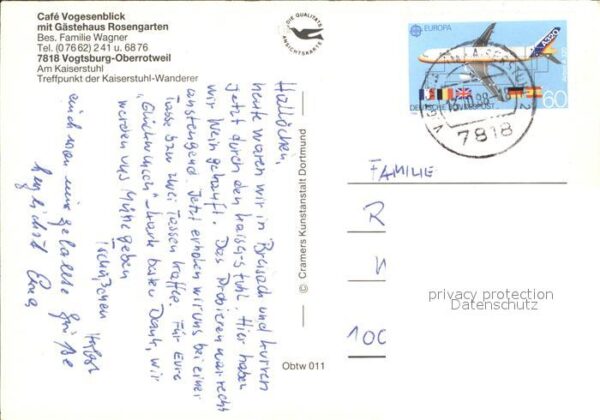 Café Vogesenblick
mit Gästehaus Rosengarten
Bes. Familie Wagner
Tel. (0 76 62) 2 41 u. 68 76
7818 Vogtsburg-Oberrotweil
Am Kaiserstuhl
Treffpunkt der Kaiserstuhl-Wanderer
DIE QUALITÄTS
ANSICHTSKARTE
EUROPA
Airbus A320
60
DEUTSCHE BUNDESPOST
7818
Hallöchen,
heute waren wir in Breisach und kurven
jetzt durch den Kaiserstuhl. Hier haben
wir Wein gekauft. Das Probieren war recht
anstrengend. Jetzt erholen wir uns bei einer
Tasse bzw zwei Tassen Kaffee. Für Eure
"Glückwunsch"-Karte besten Dank, wir
werden uns Mühe geben
Tschüßchen
auch von mir ganz liebe Grüße
herzlichst
© Cramers Kunstanstalt Dortmund
Obtw 011
FAMILIE
R
100
privacy protection
Datenschutz